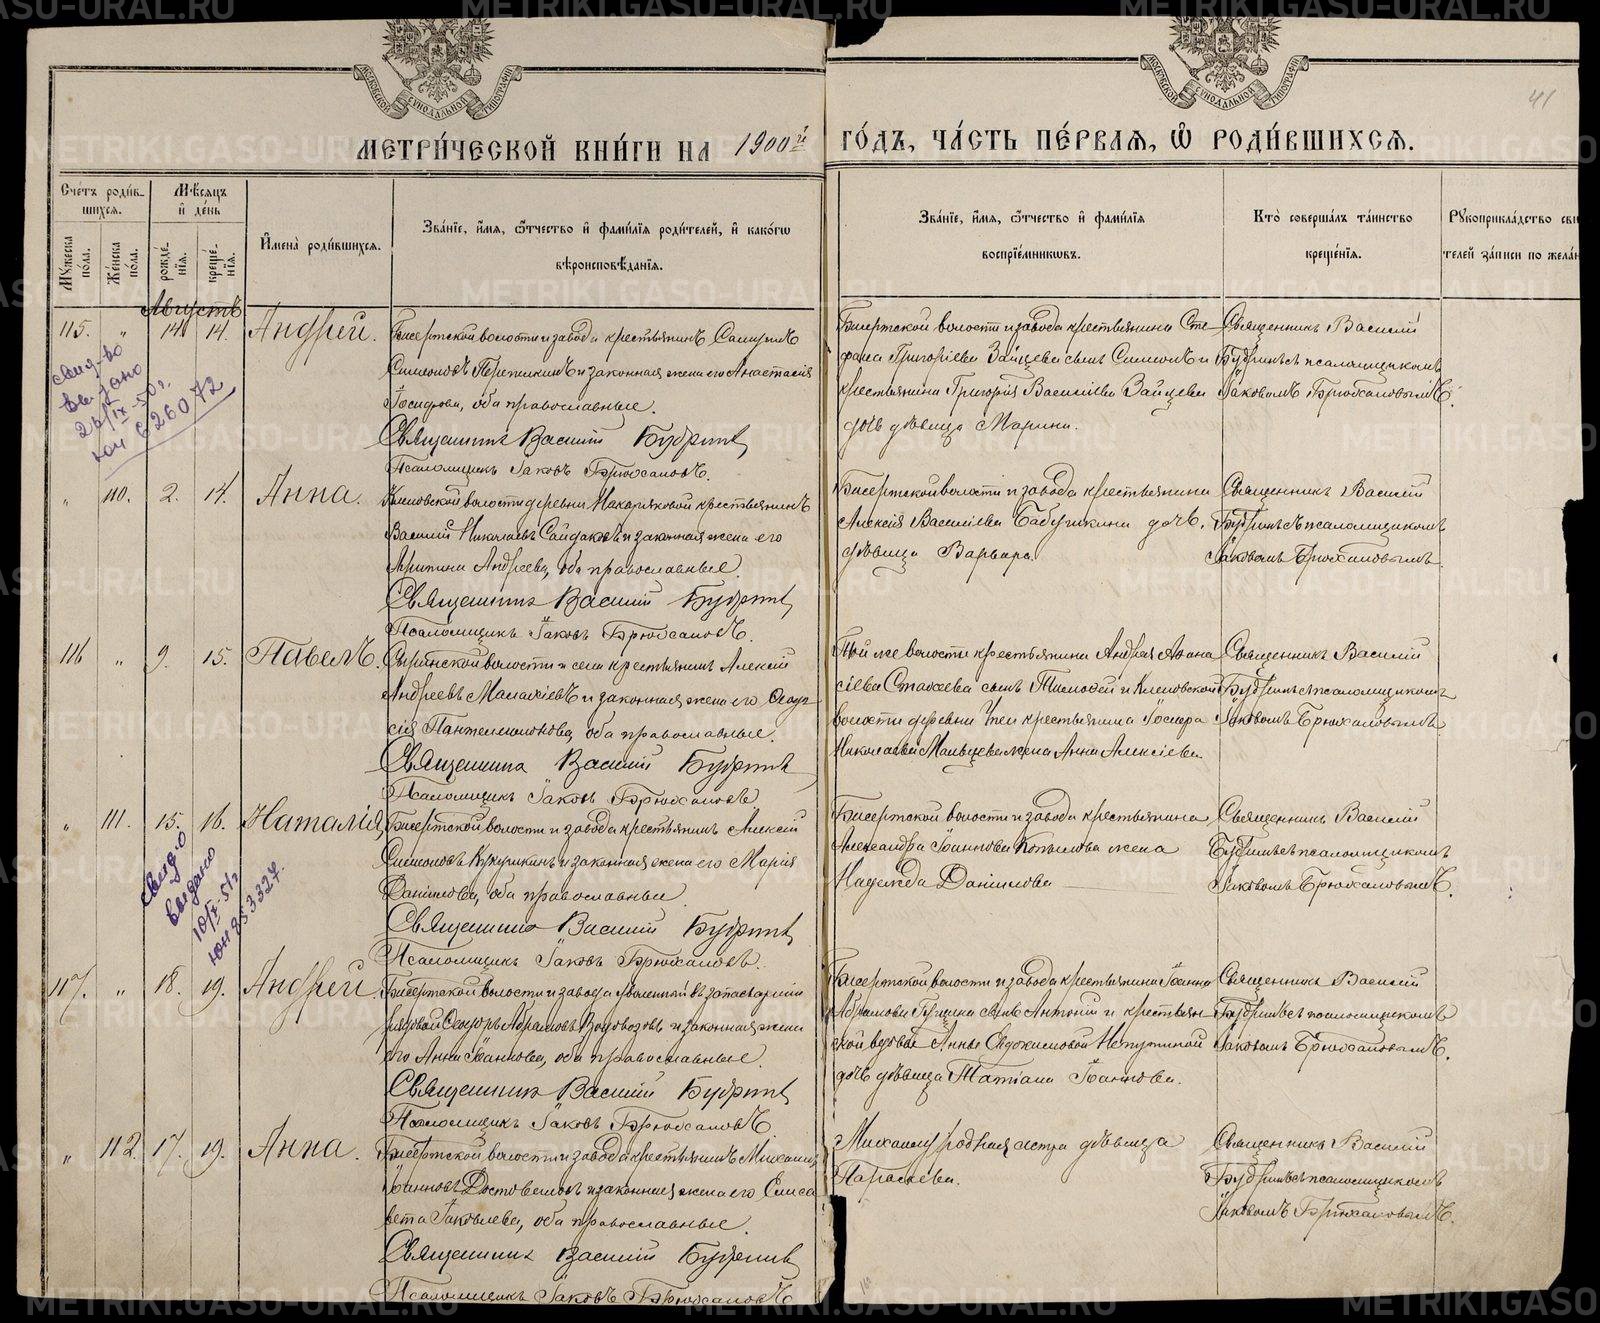 МЕТРИ́ЧЕСКОЙ КНИ́ГИ НА 1900й ГО́ДЪ, ЧА́СТЬ ПЕ́РВАѦ, Ѡ҆ РОДИ́ВШИХСѦ.
41
МОСКОВСКОЙ СѴНОДАЛЬНОЙ ТИПОГРАФІИ
МОСКОВСКОЙ СѴНОДАЛЬНОЙ ТИПОГРАФІИ
Сче́тъ роди́в-
шихсѧ.
Мꙋ́жеска по́ла.
Же́нска по́ла.
Мѣ́сѧцъ
и҆ де́нь
рожде́-нїѧ.
креще́-нїѧ.
И҆мена̀ роди́вшихсѧ.
Зва́нїе, и҆́мѧ, ѻ҆́тчество и҆ фами́лїѧ роди́телей, и҆ како́гѡ
вѣроисповѣ́данїѧ.
Зва́нїе, и҆́мѧ, ѻ҆́тчество и҆ фами́лїѧ
воспрїе́мникѡвъ.
Кто̀ соверша́лъ та́инство
креще́нїѧ.
Рꙋкоприкла́дство сви
телей за́писи по жела́н
Августъ
115. " 14 14. Андрей.
Бисертской волости и завода крестьянинъ Самуилъ
Симеоновъ и законная жена его Анастасія
Іосифова, оба православные.
Священникъ Василій Будринъ
Псаломщикъ Іаковъ Брюхановъ.
Бисертской волости и завода крестьянина Сте-
фана Григоріева Зайцева сынъ Симеонъ и
крестьянина Григорія Василіева Зайцева
дочь дѣвица Марина.
Священникъ Василій
Будринъ съ псаломщикомъ
Іаковомъ Брюхановымъ.
свид-во
выдано
26/IX-50г.
юч 626072
" 110. 2. 14. Анна.
Кленовской волости деревни Макаряковой крестьянинъ
Василій Николаевъ Сайдаковъ и законная жена его
Андреева, оба православные.
Священникъ Василій Будринъ
Псаломщикъ Іаковъ Брюхановъ.
Бисертской волости и завода крестьянина
Алексія Василіева Бабушкина дочь,
дѣвица Варвара.
Священникъ Василій
Будринъ съ псаломщикомъ
Іаковомъ Брюхановымъ.
116 " 9. 15. Павелъ.
волости и села крестьянинъ Алексій
Андреевъ Малахіевъ и законная жена его Ѳеодо
сія Пантелеимонова, оба православные.
Священникъ Василій Будринъ
Псаломщикъ Іаковъ Брюхановъ.
Той же волости крестьянина Андрея Аѳана
сіева Стахеева сынъ Тимоѳей и Кленовской
волости деревни крестьянина
Николаева Мальцева жена Анна Алексіева.
Священникъ Василій
Будринъ съ псаломщикомъ
Іаковомъ Брюхановымъ.
" 111. 15. 16. Наталія.
Бисертской волости и завода крестьянинъ Алексій
Симеоновъ Кукушкинъ и законная жена его Марія
Данилова, оба православные.
Священникъ Василій Будринъ
Псаломщикъ Іаковъ Брюхановъ.
Бисертской волости и завода крестьянина
Александра Іоаннова Копылова жена
Надежда Данилова
Священникъ Василій
Будринъ съ псаломщикомъ
Іаковомъ Брюхановымъ.
свид-о
выдано
10/X-51г
юн 853327.
117. " 18. 19. Андрей.
Бисертской волости и завода уволенный въ запасъ арміи
рядовой Ѳеодоръ Абрамовъ Водовозовъ и законная жена
его Анна Іоаннова, оба православные.
Священникъ Василій Будринъ
Псаломщикъ Іаковъ Брюхановъ.
Бисертской волости и завода крестьянина Іоанна
Абрамова Гущина сынъ Антоній и крестьян
ской вдовы Анны Евдокимовой
дочь дѣвица Татіана Іоаннова.
Священникъ Василій
Будринъ съ псаломщикомъ
Іаковомъ Брюхановымъ.
" 112. 17. 19. Анна.
Бисертской волости и завода крестьянинъ Михаилъ
Іоанновъ Достоваловъ и законная жена его Елиса
вета Іаковлева, оба православные.
Священникъ Василій Будринъ
Псаломщикъ Іаковъ Брюхановъ
Михаилу родная сестра дѣвица
Параскева.
Священникъ Василій
Будринъ съ псаломщикомъ
Іаковомъ Брюхановымъ.
METRIKI.GASO-URAL.RU